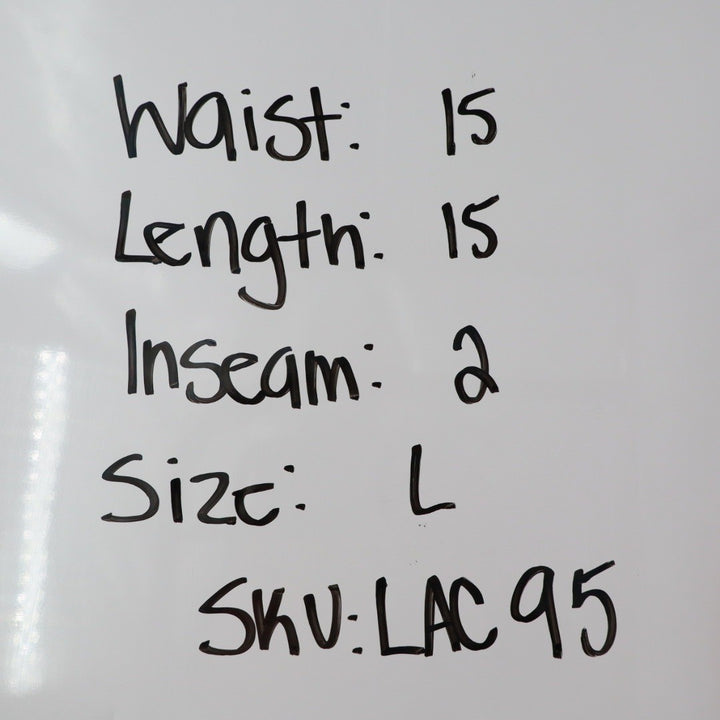 Waist: 15
Length: 15
Inseam: 2
Size: L
SKU: LAC95